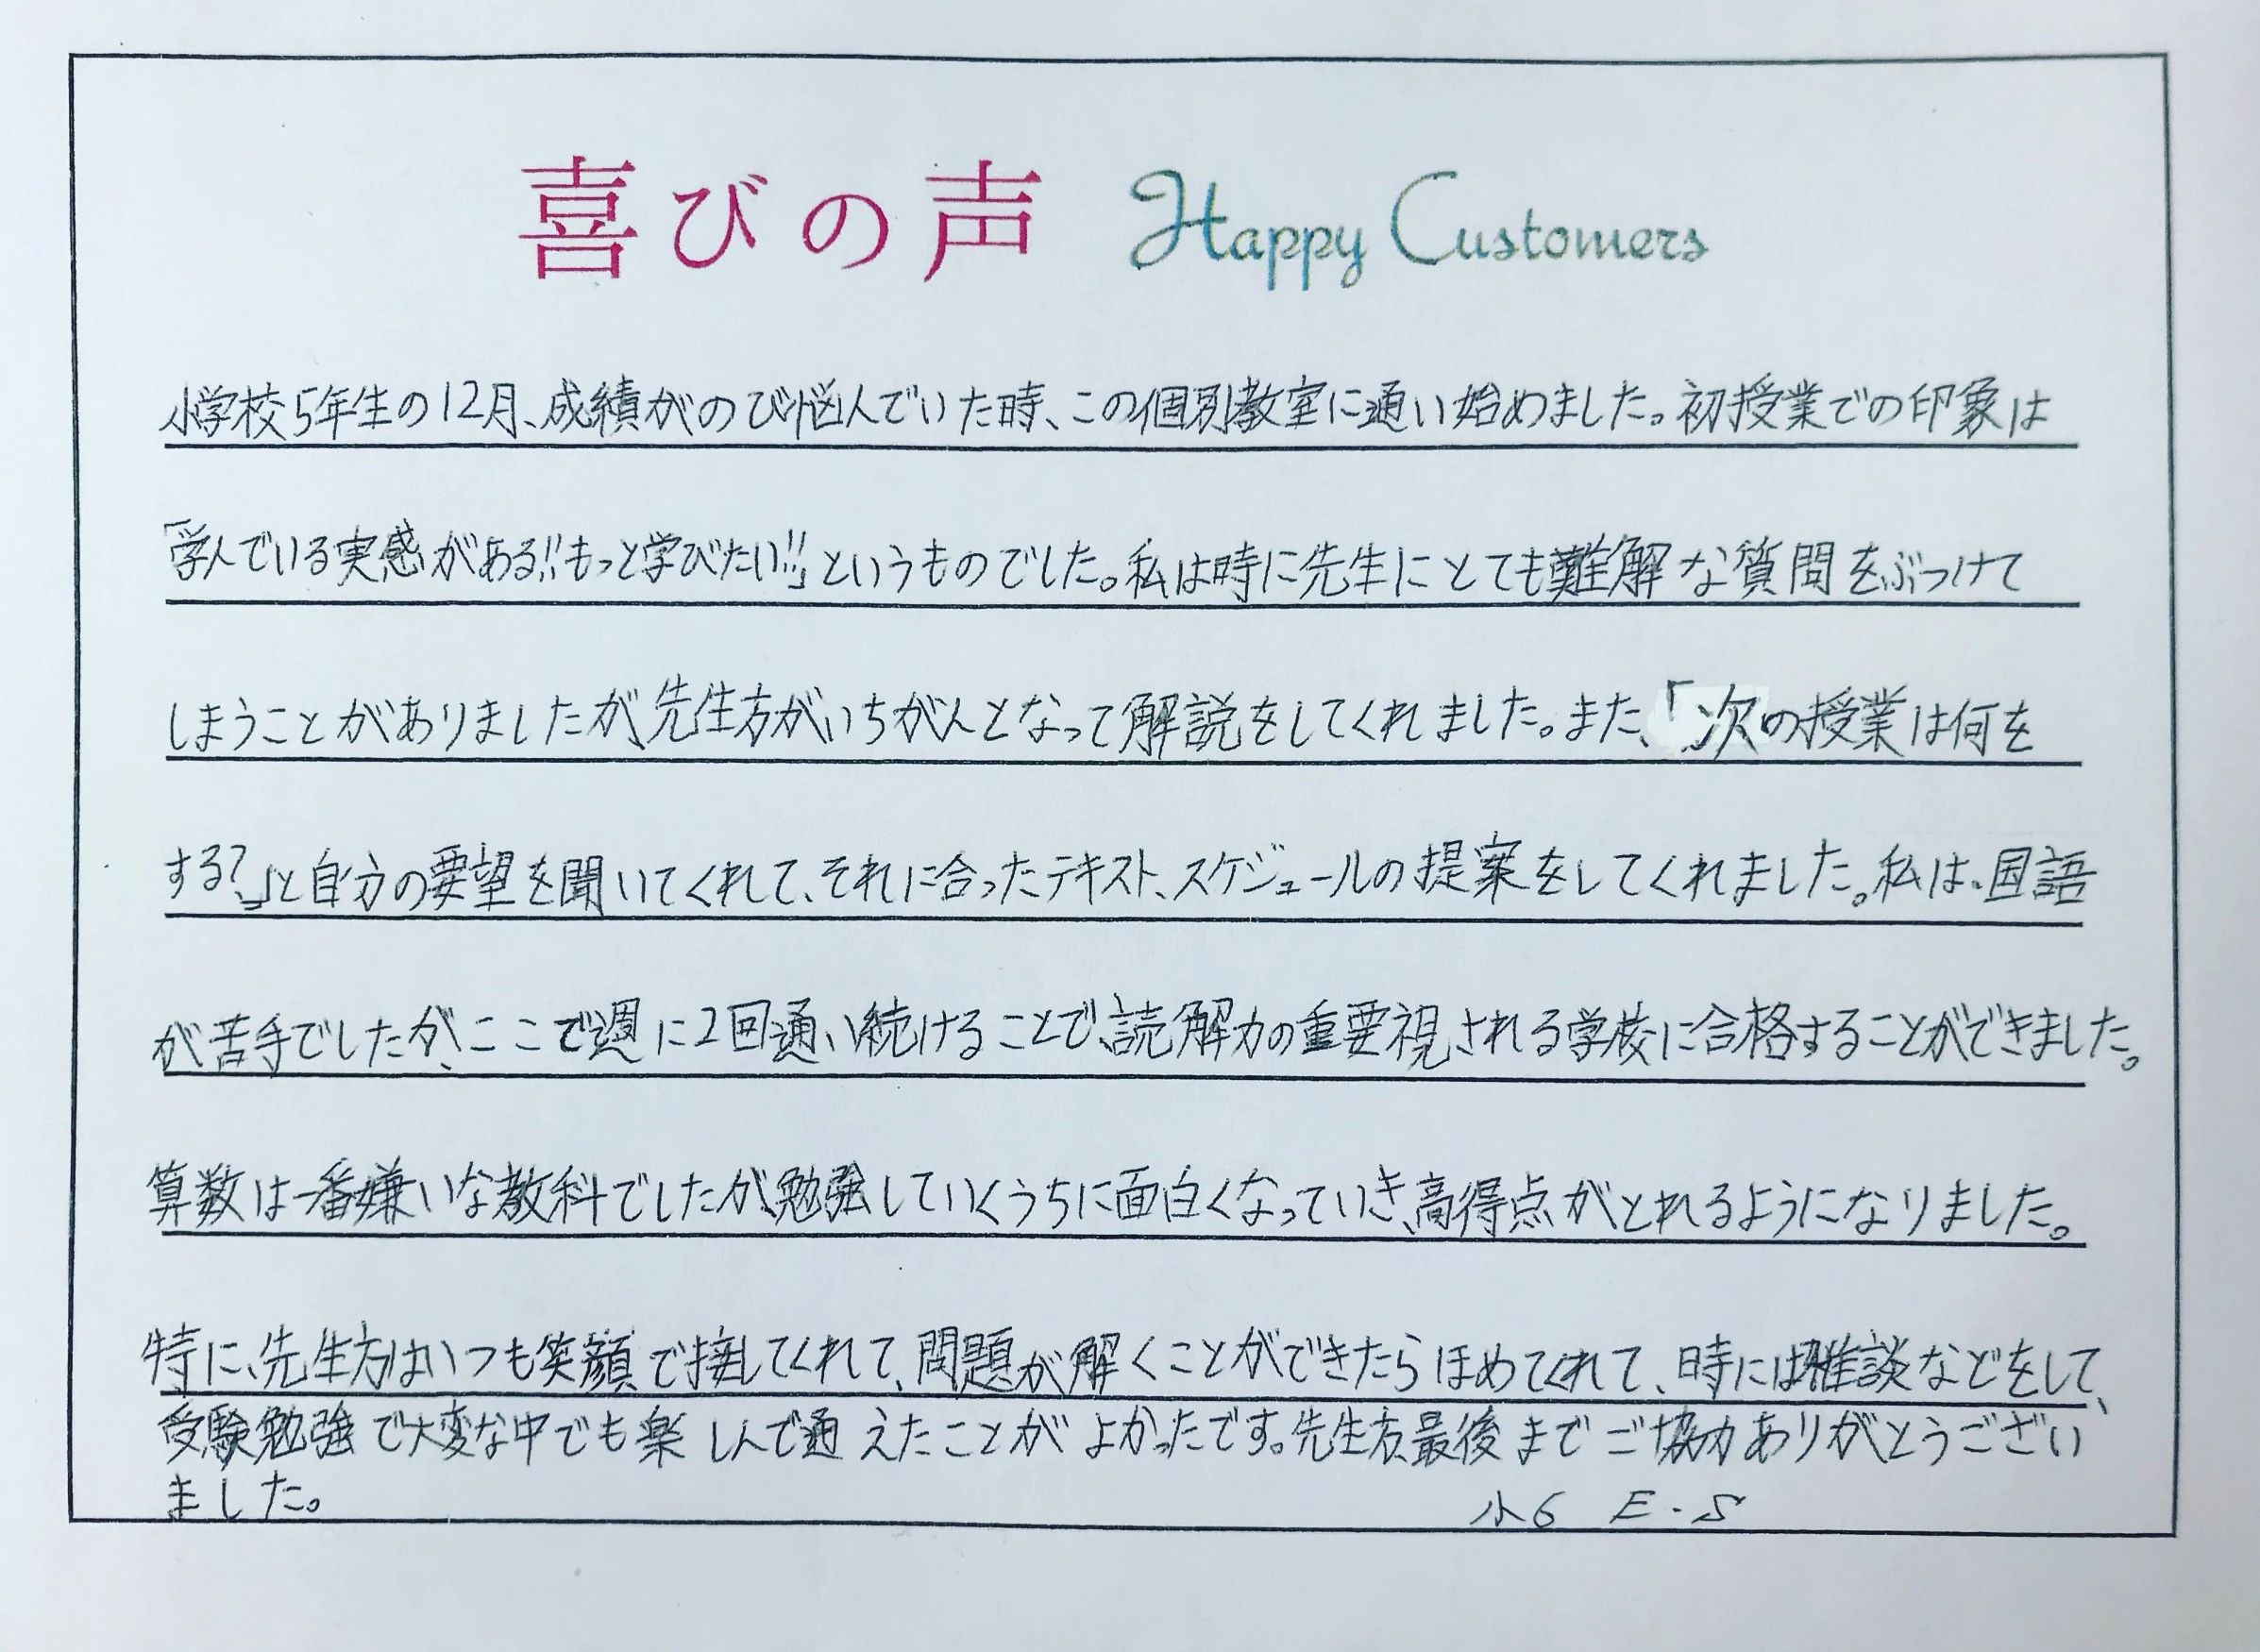 喜びの声 Happy Customers
小学校5年生の12月、成績がのび悩んでいた時、この個別教室に通い始めました。初授業での印象は
「学んでいる実感がある!!もっと学びたい!!」というものでした。私は時に先生にとても難解な質問をぶつけて
しまうことがありましたが、先生方がいちがんとなって解説をしてくれました。また、「次の授業は何を
する?」と自分の要望を聞いてくれて、それに合ったテキスト、スケジュールの提案をしてくれました。私は、国語
が苦手でしたが、ここで週に2回通い続けることで、読解力の重要視される学校に合格することができました。
算数は一番嫌いな教科でしたが、勉強していくうちに面白くなっていき、高得点がとれるようになりました。
特に、先生方はいつも笑顔で接してくれて、問題が解くことができたらほめてくれて、時には雑談などをして、
受験勉強で大変な中でも楽しんで通えたことがよかったです。先生方、最後までご協力ありがとうござい
ました。
小6 E・S